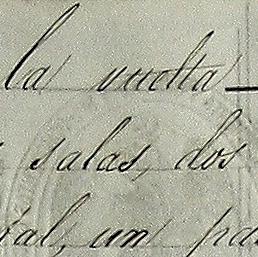 la vuelta
salas, dos
tal, un